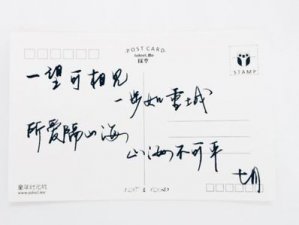 POST CARD
STAMP
一望可相见
一步如重城
所爱隔山海
山海不可平
七月